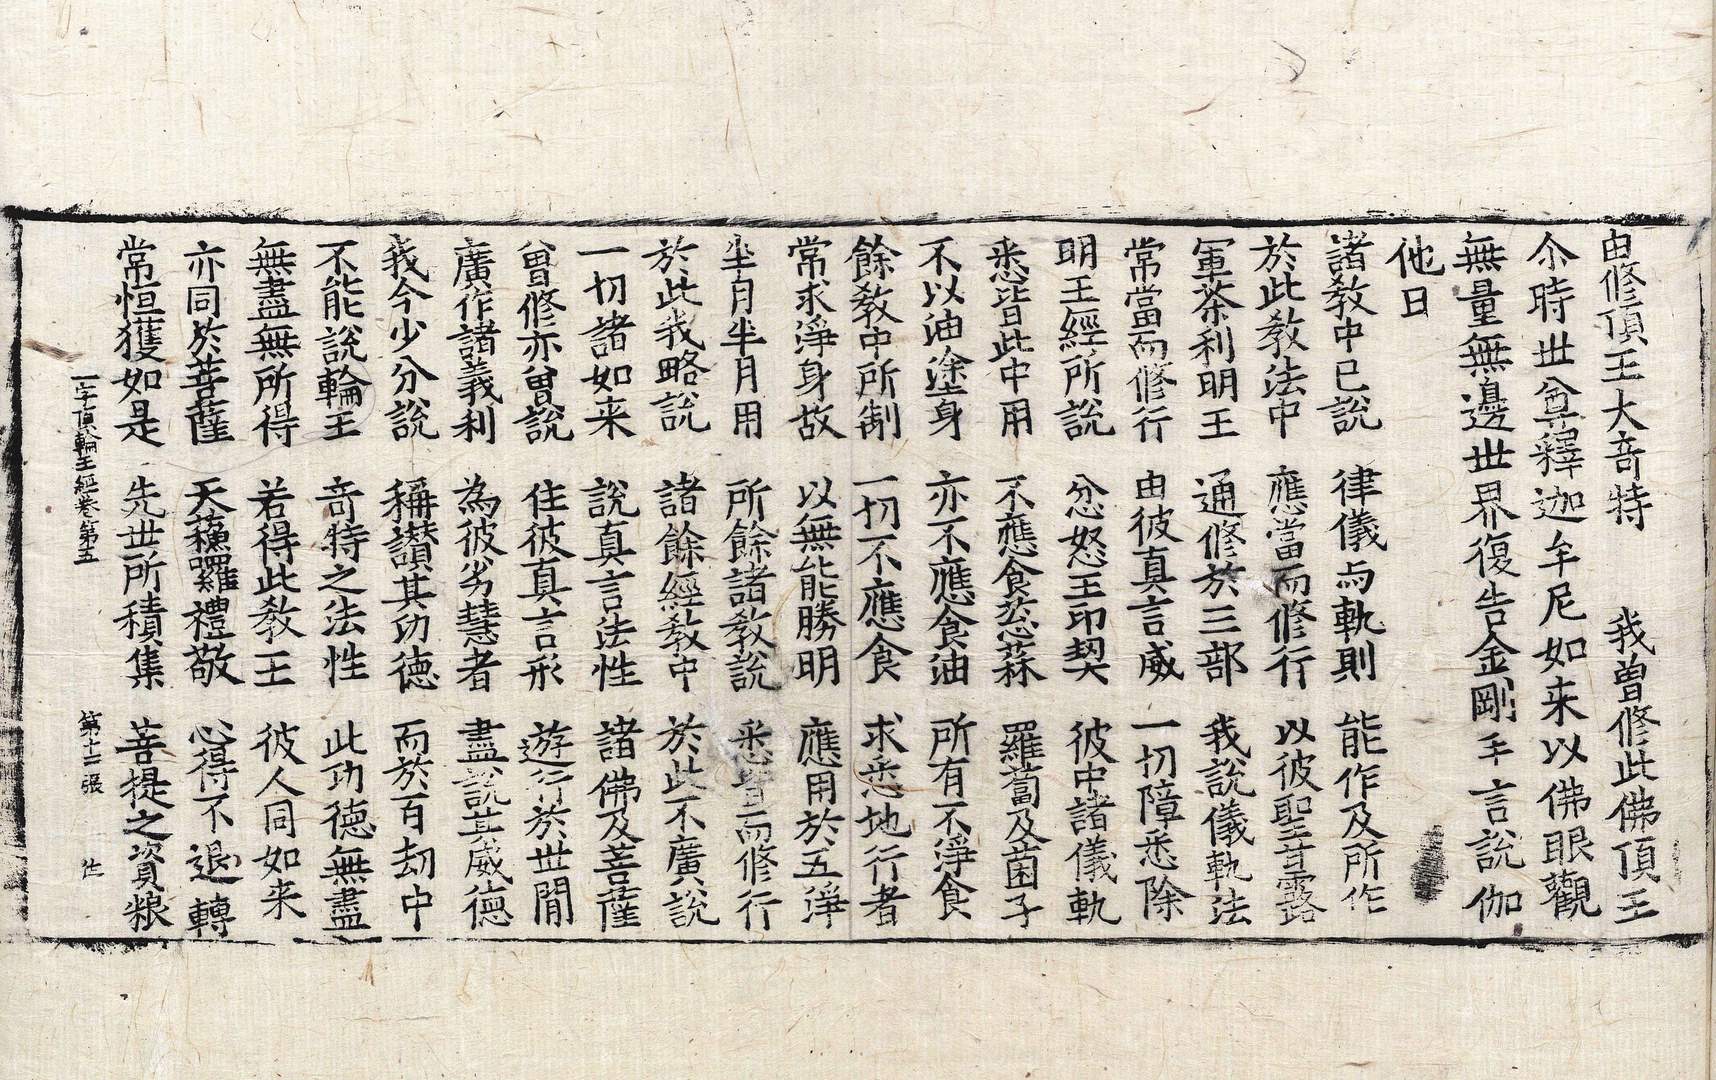 由修頂王大奇特　我曾修此佛頂王
尒時世尊釋迦牟尼如来以佛眼觀
無量無邊世界復告金剛手言說伽
他曰
諸教中已說　律儀与軌則　能作及所作
於此教法中　應當而修行　以彼聖甘露
軍荼利明王　通修於三部　我說儀軌法
常當而修行　由彼真言威　一切障悉除
明王經所說　忿怒王印契　彼中諸儀軌
悉皆此中用　不應食葱蒜　羅蔔及菌子
不以油塗身　亦不應食油　所有不淨食
餘教中所制　一切不應食　求悉地行者
常求淨身故　以無能勝明　應用於五淨
半月半月用　所餘諸教說　悉皆而修行
於此我略說　諸餘經教中　於此不廣說
一切諸如来　說真言法性　諸佛及菩薩
曾修亦曾說　住彼真言形　遊行於世間
廣作諸義利　為彼劣慧者　盡說其威德
我今少分說　稱讃其功德　而於百劫中
不能說輪王　奇特之法性　此功德無盡
無盡無所得　若得此教王　彼人同如来
亦同於菩薩　天蘓囉禮敬　心得不退轉
常恒獲如是　先世所積集　菩提之資粮
一字頂輪王經卷第五　第十二張